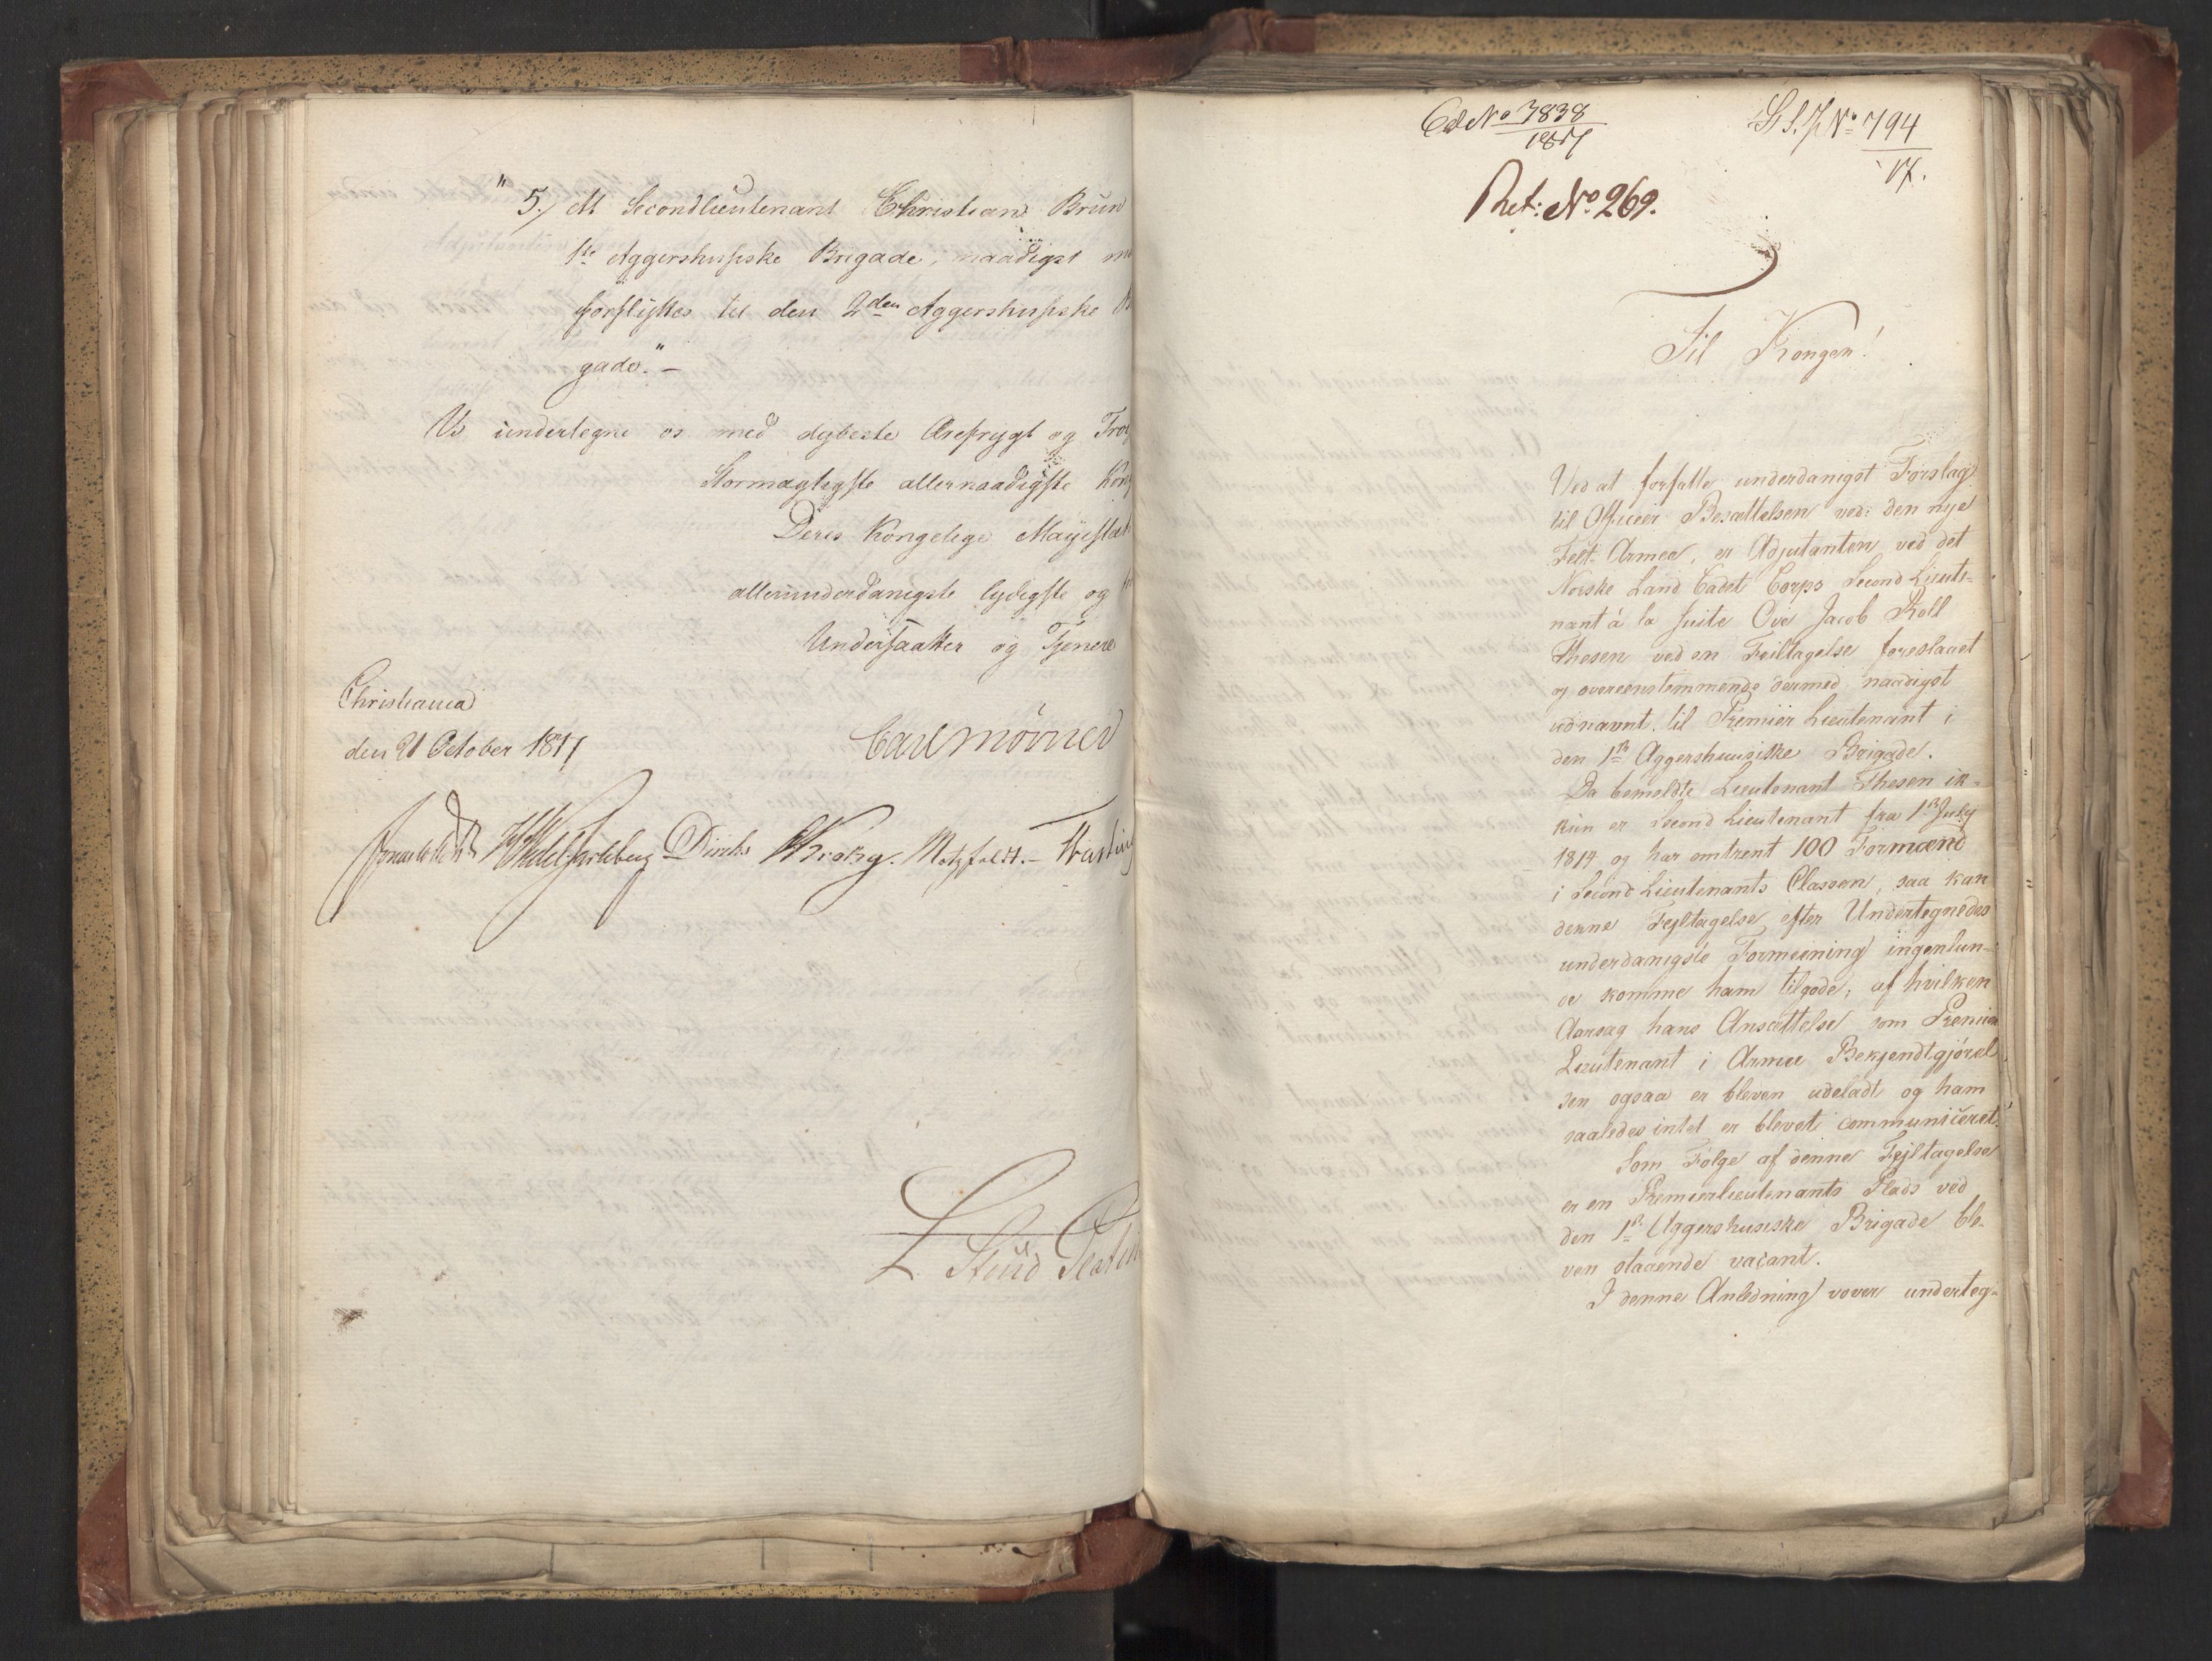 " 5./ At Secondlieutenant Christian Brun
1ste Aggershusiske Brigade, naadigst
forflyttes til den 2den Aggershusiske
gade." –
Vi undertegne os med dybeste Ærefrygt og
Stormægtigste allernaadigste
Deres Kongelige Majestæt
allerunderdanigste lydigste og
Undersaatter og Tjenere
Christiania
den 21 October 1817
Carl Mörner
Wedel Jarlsberg Diriks Krohg. Motzfeldt. –
No 3838
1817
No 794
17.
Ret: No 269.
Til Kongen!
Ved at forfatte underdanigst Forslag
til Officeer Besættelsen ved den nye
Felt-Armee, er Adjutanten ved det
Norske Land Cadet Corps Second Lieute-
nant á la suite Ove Jacob Roll
Thesen ved en Feiltagelse foreslaaet
og overeenstemmende dermed naadigst
udnævnt til Premier Lieutenant i
den 1ste Aggershuusiske Brigade.
Da bemeldte Lieutenant Thesen ik-
kun er Second Lieutenant fra 1ste July
1814 og har omtrent 100 Formænd
i Second Lieutenants Classen, saa kan
denne Fejltagelse efter Undertegnedes
underdanigste Formening ingenlun-
de komme ham tilgode; af hvilken
Aarsag hans Ansættelse som Premier
Lieutenant i Armee Bekjendtgjörel
sen ogsaa er bleven udeladt og ham
saaledes intet er blevet communiceret.
Som Følge af denne Fejltagelse
er en Premierlieutenants Plads ved
den 1ste Aggershusiske Brigade ble-
ven staaende vacant.
I denne Anledning vover underteg-